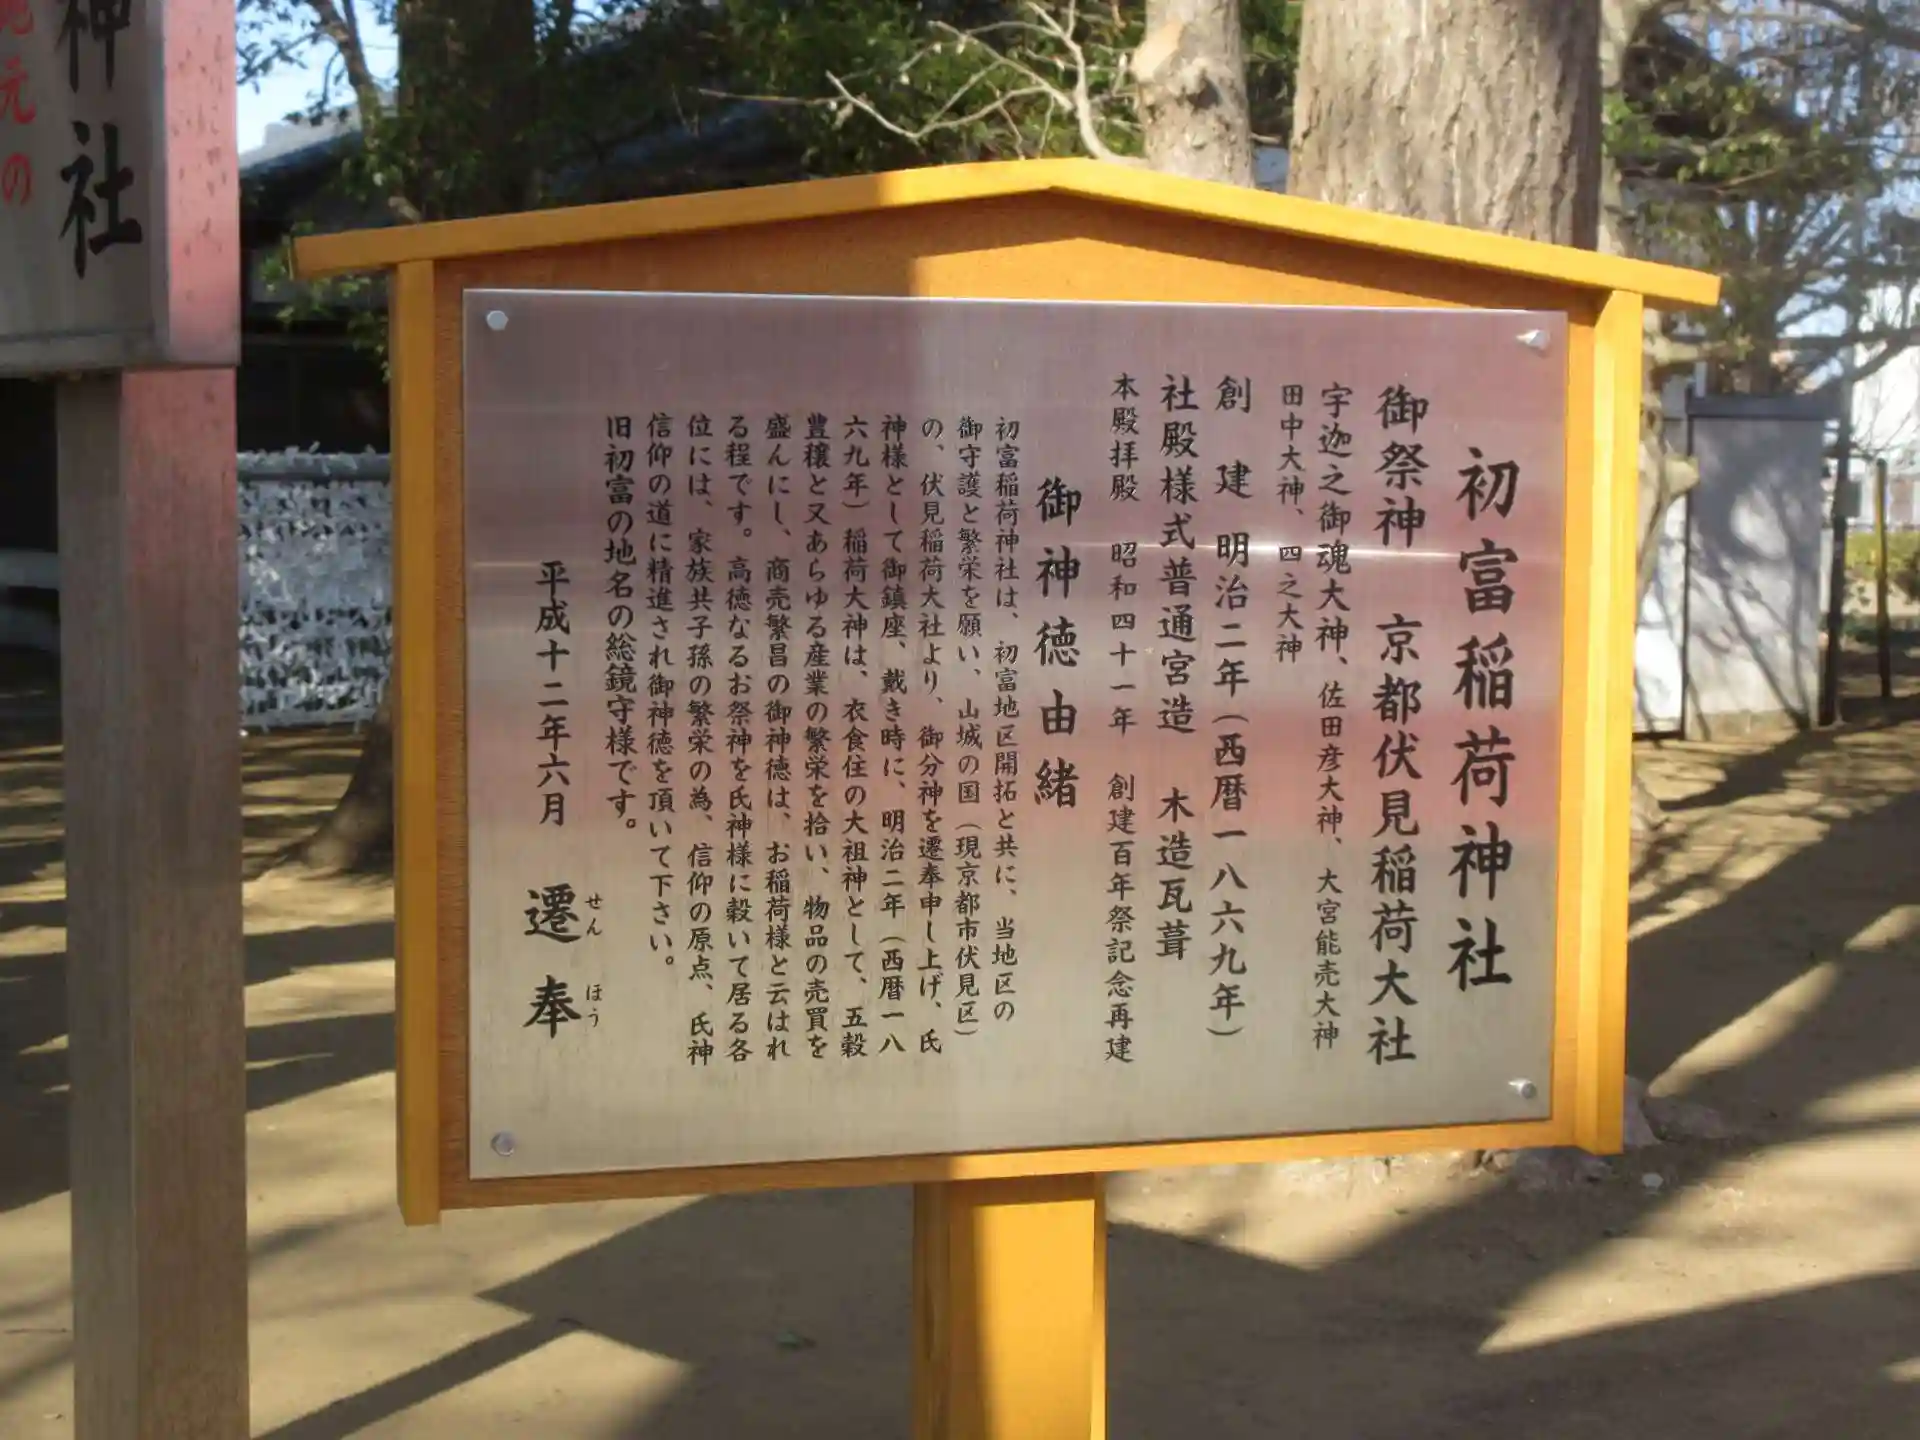 初富稲荷神社
御祭神　京都伏見稲荷大社
宇迦之御魂大神、佐田彦大神、大宮能売大神
田中大神、四之大神
創　建　明治二年（西暦一八六九年）
社殿様式普通宮造　木造瓦葺
本殿拝殿　昭和四十一年　創建百年祭記念再建
御神徳由緒
初富稲荷神社は、初富地区開拓と共に、当地区の
御守護と繁栄を願い、山城の国（現京都市伏見区）
の、伏見稲荷大社より、御分神を遷奉申し上げ、氏
神様として御鎮座、戴き時に、明治二年（西暦一八
六九年）稲荷大神は、衣食住の大祖神として、五穀
豊穣と又あらゆる産業の繁栄を拾い、物品の売買を
盛んにし、商売繁昌の御神徳は、お稲荷様と云はれ
る程です。高徳なるお祭神を氏神様に穀いて居る各
位には、家族共子孫の繁栄の為、信仰の原点、氏神
信仰の道に精進され御神徳を頂いて下さい。
旧初富の地名の総鏡守様です。
平成十二年六月　遷奉
せん　ほう
神社
元の